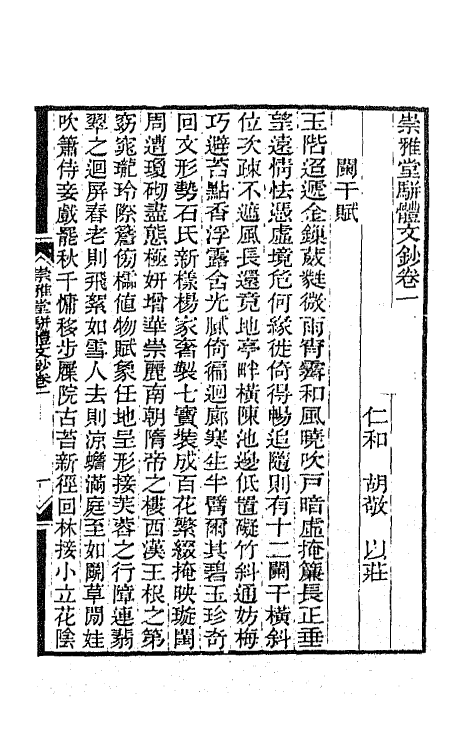 崇雅堂駢體文鈔卷一
仁和　胡敬　以莊
闌干賦
玉階迢遞金鎖葳蕤微雨宵霽和風曉吹戸暗虛掩簾長正垂
望遠情怯憑虛境危何緣徙倚得暢追隨則有十二闌干橫斜
位次疎不遮風長還竟地亭畔橫陳池邊低置礙竹斜通妨梅
巧避苔點香浮露含光膩倚徧迴廊寒生半臂爾其碧玉珍奇
回文形勢石氏新樣楊家奢製七寶裝成百花縈綴掩映璇閨
周遭瓊砌盡態極妍增華崇麗南朝隋帝之樓西漢王根之第
窈窕瓏玲際簷傍櫺値物賦象任地呈形接芙蓉之行障連翡
翠之迴屏春老則飛絮如雪人去則涼蟾滿庭至如鬭草閒娃
吹簫侍妾戲罷秋千慵移步屧院古苔新徑回林接小立花陰
崇雅堂駢體文鈔卷一
一